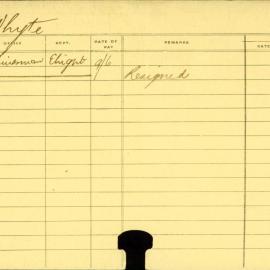 Whyte
OFFICE DEPT. RATE OF PAY REMARKS DATE
Linesman Elright 9/6 Resigned